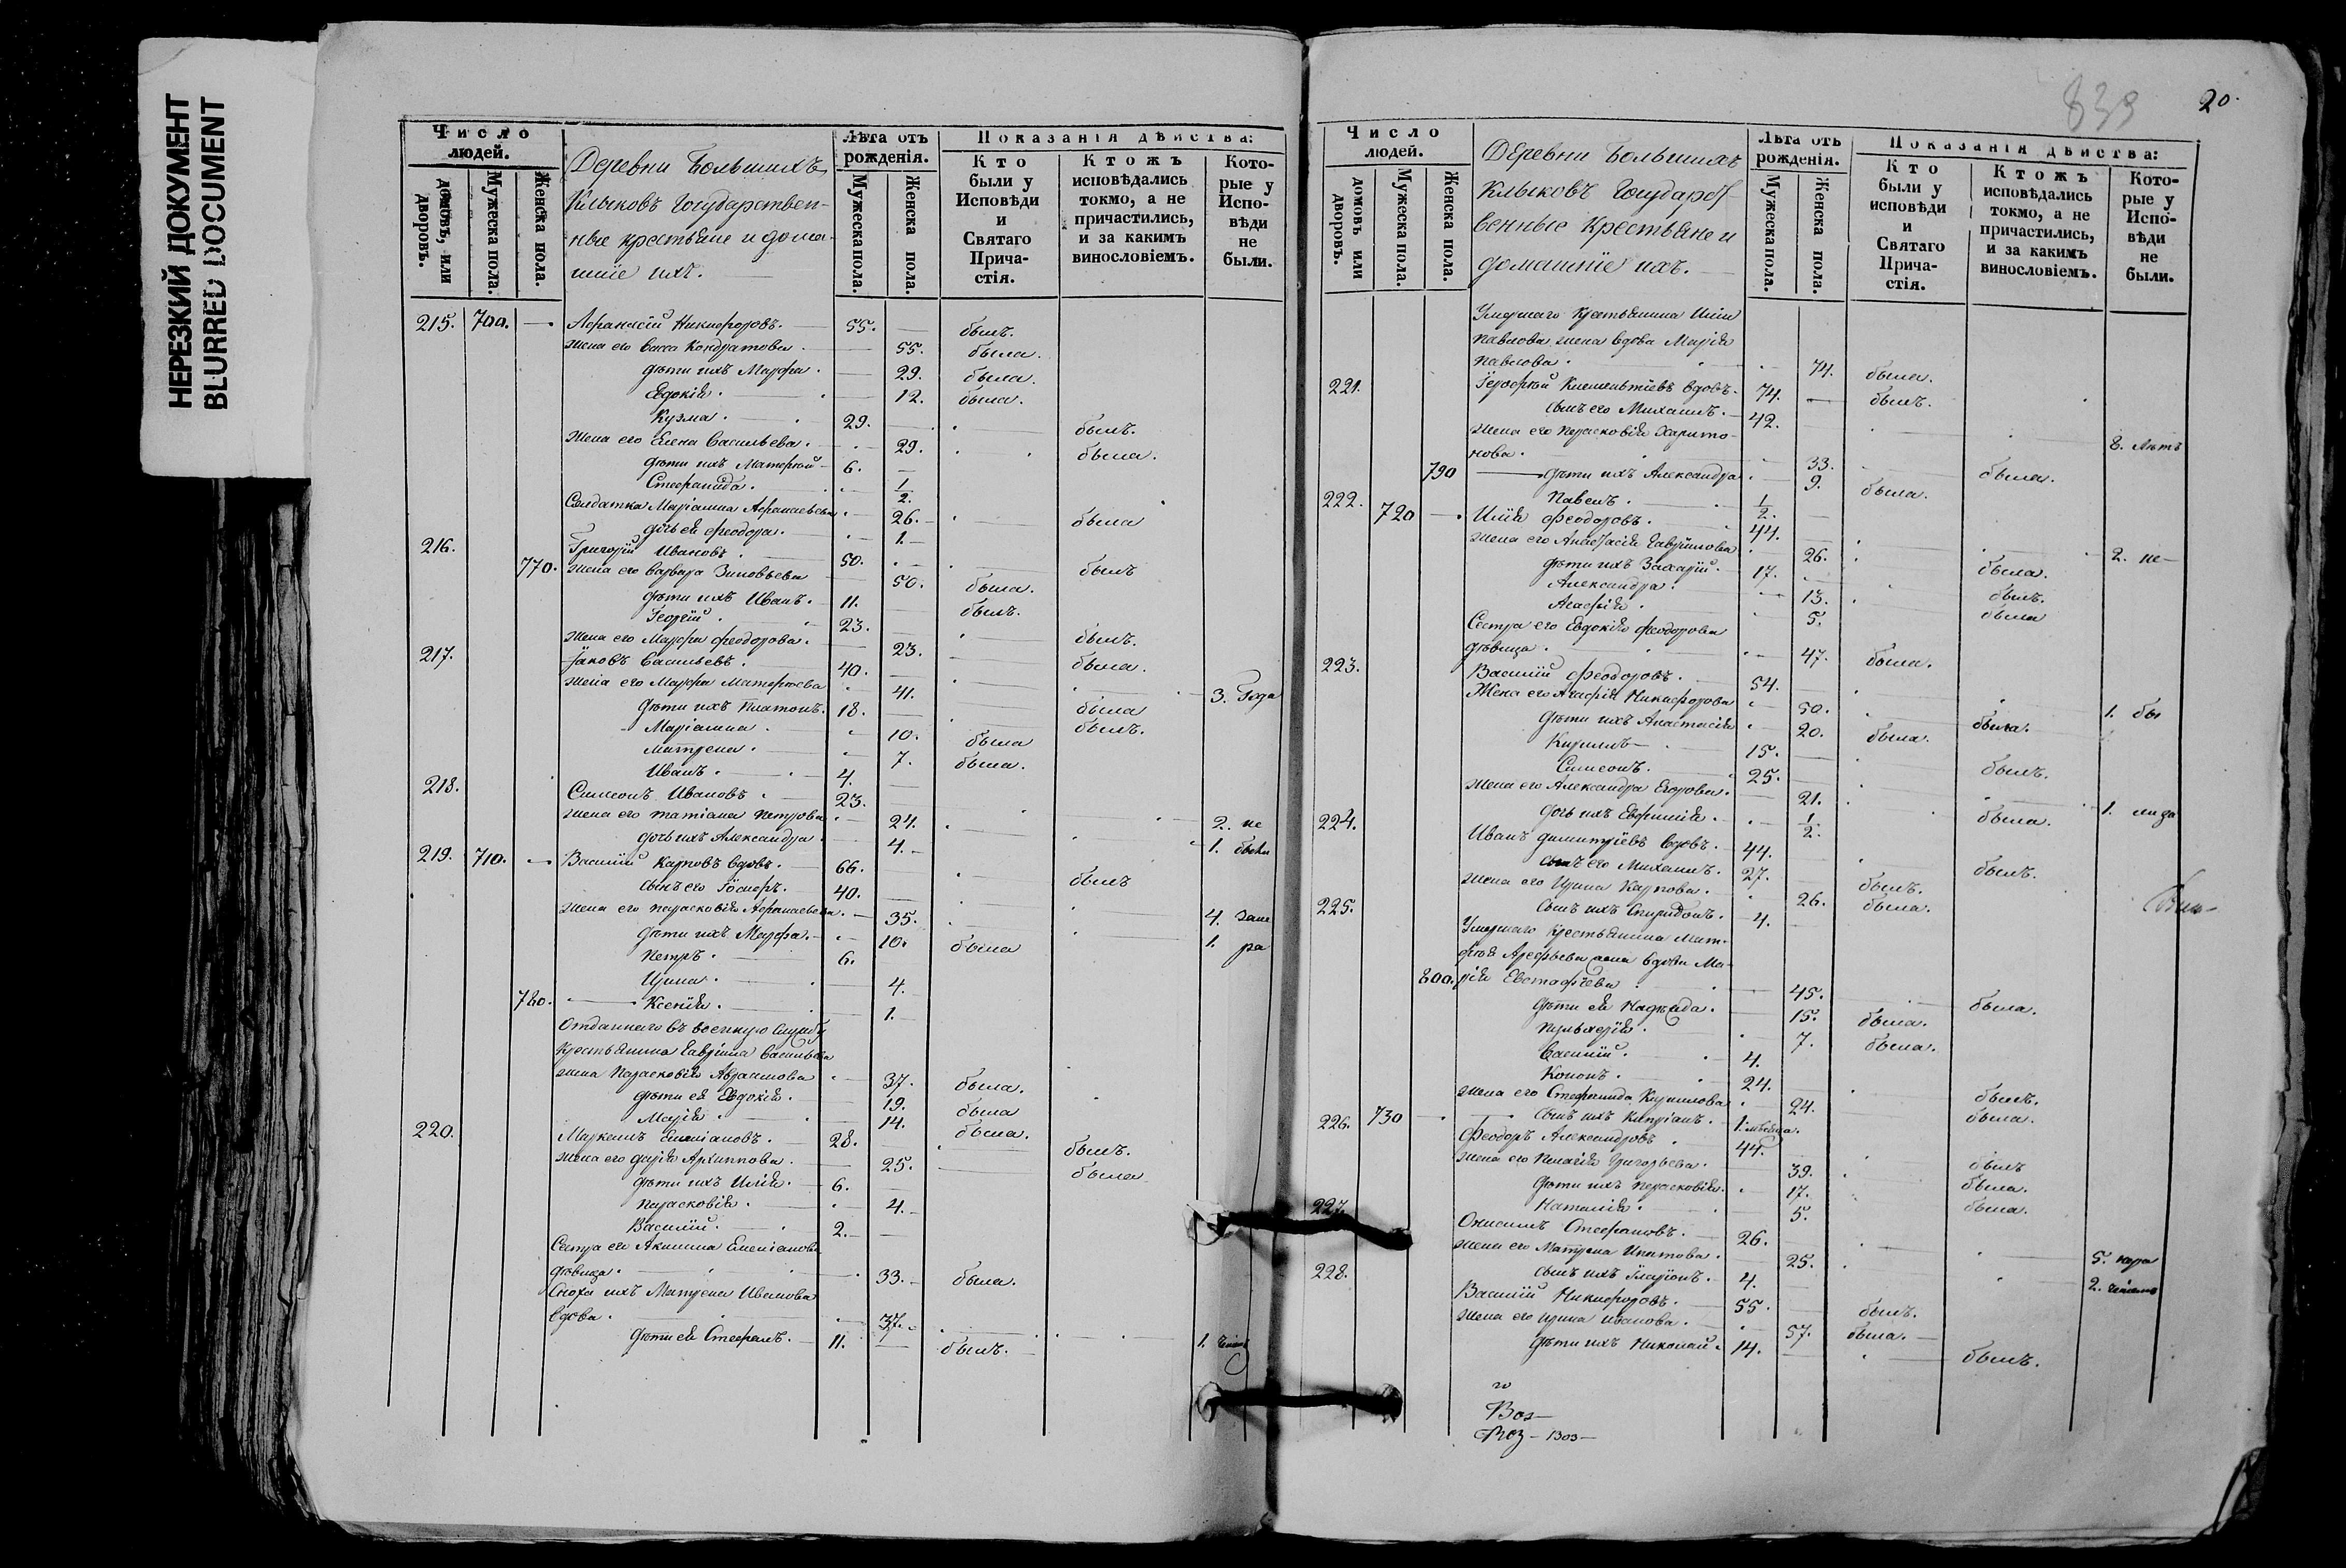 НЕРЕЗКИЙ ДОКУМЕНТ
BLURRED DOCUMENT
Число людей.
домовъ, или дворовъ.
Мужеска пола.
Женска пола.
Деревни Большихъ
Клыковъ Государствен-
ные крестьяне и дома-
шніе ихъ.
Лѣта отъ рожденія.
Мужеска пола.
Женска пола.
Показанія дѣйства:
Кто были у Исповѣди и Святаго Прича-стія.
Ктожъ исповѣдались токмо, а не причастились, и за какимъ винословіемъ.
Кото-рые у Испо-вѣди не были.
215. 700. — Афанасій Никифоровъ. 55. былъ.
жена его Васса Кондратова. 55. была.
дѣти ихъ Марфа. 29. была.
Евдокія. 12. была.
Кузма. 29. былъ.
жена его Елена Васильева. 29. была.
дѣти ихъ Матфей 6.
Стефанида. 1/2.
Солдатка Маріамна Афанасьева 26. была
дочь ея Феодора. 1.
216. Григорій Ивановъ. 50. былъ
770. жена его Варвара Зиновьева 50. была.
дѣти ихъ Иванъ. 11. былъ.
Георгій. 23. былъ.
жена его Марфа Феодорова. 23. была.
217. Іаковъ Васильевъ. 40. 3. Года
жена его Марфа Матфеева 41. была
дѣти ихъ Платонъ. 18. былъ.
Маріамна. 10. была
Матрена. 7. была.
Иванъ. 4.
218. Симеонъ Ивановъ. 23. 2. не
жена его Татіана Петрова 24. 1. были
дочь ихъ Александра. 4.
219. 710. — Василій Карповъ вдовъ. 66. былъ
сынъ его Іосифъ. 40. 4. заш
жена его Парасковія Афанасьева. 35. 1. ра
дѣти ихъ Марфа. 10. была
Петръ. 6.
Ирина. 4.
780. Ксенія. 1.
Отданнаго въ военную службу
крестьянина Гавріила Васильева
жена Парасковія Абрамова 37. была.
дѣти ея Евдокія. 19. была
Марія. 14. была.
220. Маркелъ Емеліановъ. 28. былъ.
жена его Дарія Архиппова. 25. была
дѣти ихъ Илія. 6.
Парасковія. 4.
Василій. 2.
Сестра его Акилина Емеліанова
дѣвица. 33. была.
Сноха ихъ Матрена Иванова
вдова. 37. 1.
дѣти ея Стефанъ. 11. былъ.
839
20.
Число людей.
домовъ или дворовъ.
Мужеска пола.
Женска пола.
Деревни Большихъ
Клыковъ Государст-
венные Крестьяне и
домашніе ихъ.
Лѣта отъ рожденія.
Мужеска пола.
Женска пола.
Показанія дѣйства:
Кто были у исповѣди и Святаго Прича-стія.
Ктожъ исповѣдались токмо, а не причастились, и за какимъ винословіемъ.
Кото-рые у Испо-вѣди не были.
Умершаго крестьянина Иліи
Павлова жена вдова Марія
Павлова. 74. была.
221. Іерофей Клементіевъ вдовъ. 74. былъ.
сынъ его Михаилъ. 42. 8. лѣтъ
жена его Парасковія Харито-
нова. 33. была.
790 дѣти ихъ Александра 9. была.
Павелъ. 1/2.
222. 720 — Илія Феодоровъ. 44. 2. не
жена его Анастасія Гавриилова 26. была.
дѣти ихъ Захарій. 17. былъ.
Александра. 13. была
Агафія. 5.
Сестра его Евдокія Феодорова
дѣвица. 47. была.
223. Василій Феодоровъ. 54. 1. бы
Жена его Агафія Никифорова 50. была.
дѣти ихъ Анастасія 20. была.
Кириллъ 15. былъ.
Симеонъ. 25. 1.
жена его Александра Егорова. 21. была.
дочь ихъ Евфимія. 1/2.
224. Иванъ Димитріевъ вдовъ. 44. былъ.
сынъ его Михаилъ. 27. былъ.
жена его Ирина Карпова. 26. была.
сынъ ихъ Спиридонъ. 4.
225. Умершаго крестьянина Мат-
фея Арефьева жена вдова Ма-
800. рія Евстафіева 45. была.
дѣти ея Надежда. 15. была.
Пульхерія. 7. была.
Василій. 4.
Кононъ. 24. былъ.
жена его Стефанида Кирилова 24. была.
730 — сынъ ихъ Кипріанъ. 1. мѣсяца.
226. Феодоръ Александровъ 44. былъ
жена его Пелагія Григорьева. 39. была.
дѣти ихъ Парасковія. 17. была.
Наталія. 5.
227. Онисимъ Стефановъ. 26. 5.
жена его Матрена Ипатова. 25. 2.
сынъ ихъ Иларіонъ. 4.
228. Василій Никифоровъ. 55. былъ.
жена его Ирина Иванова. 57. была.
дѣти ихъ Николай 14. былъ.
Воз—
Воз — Воз—